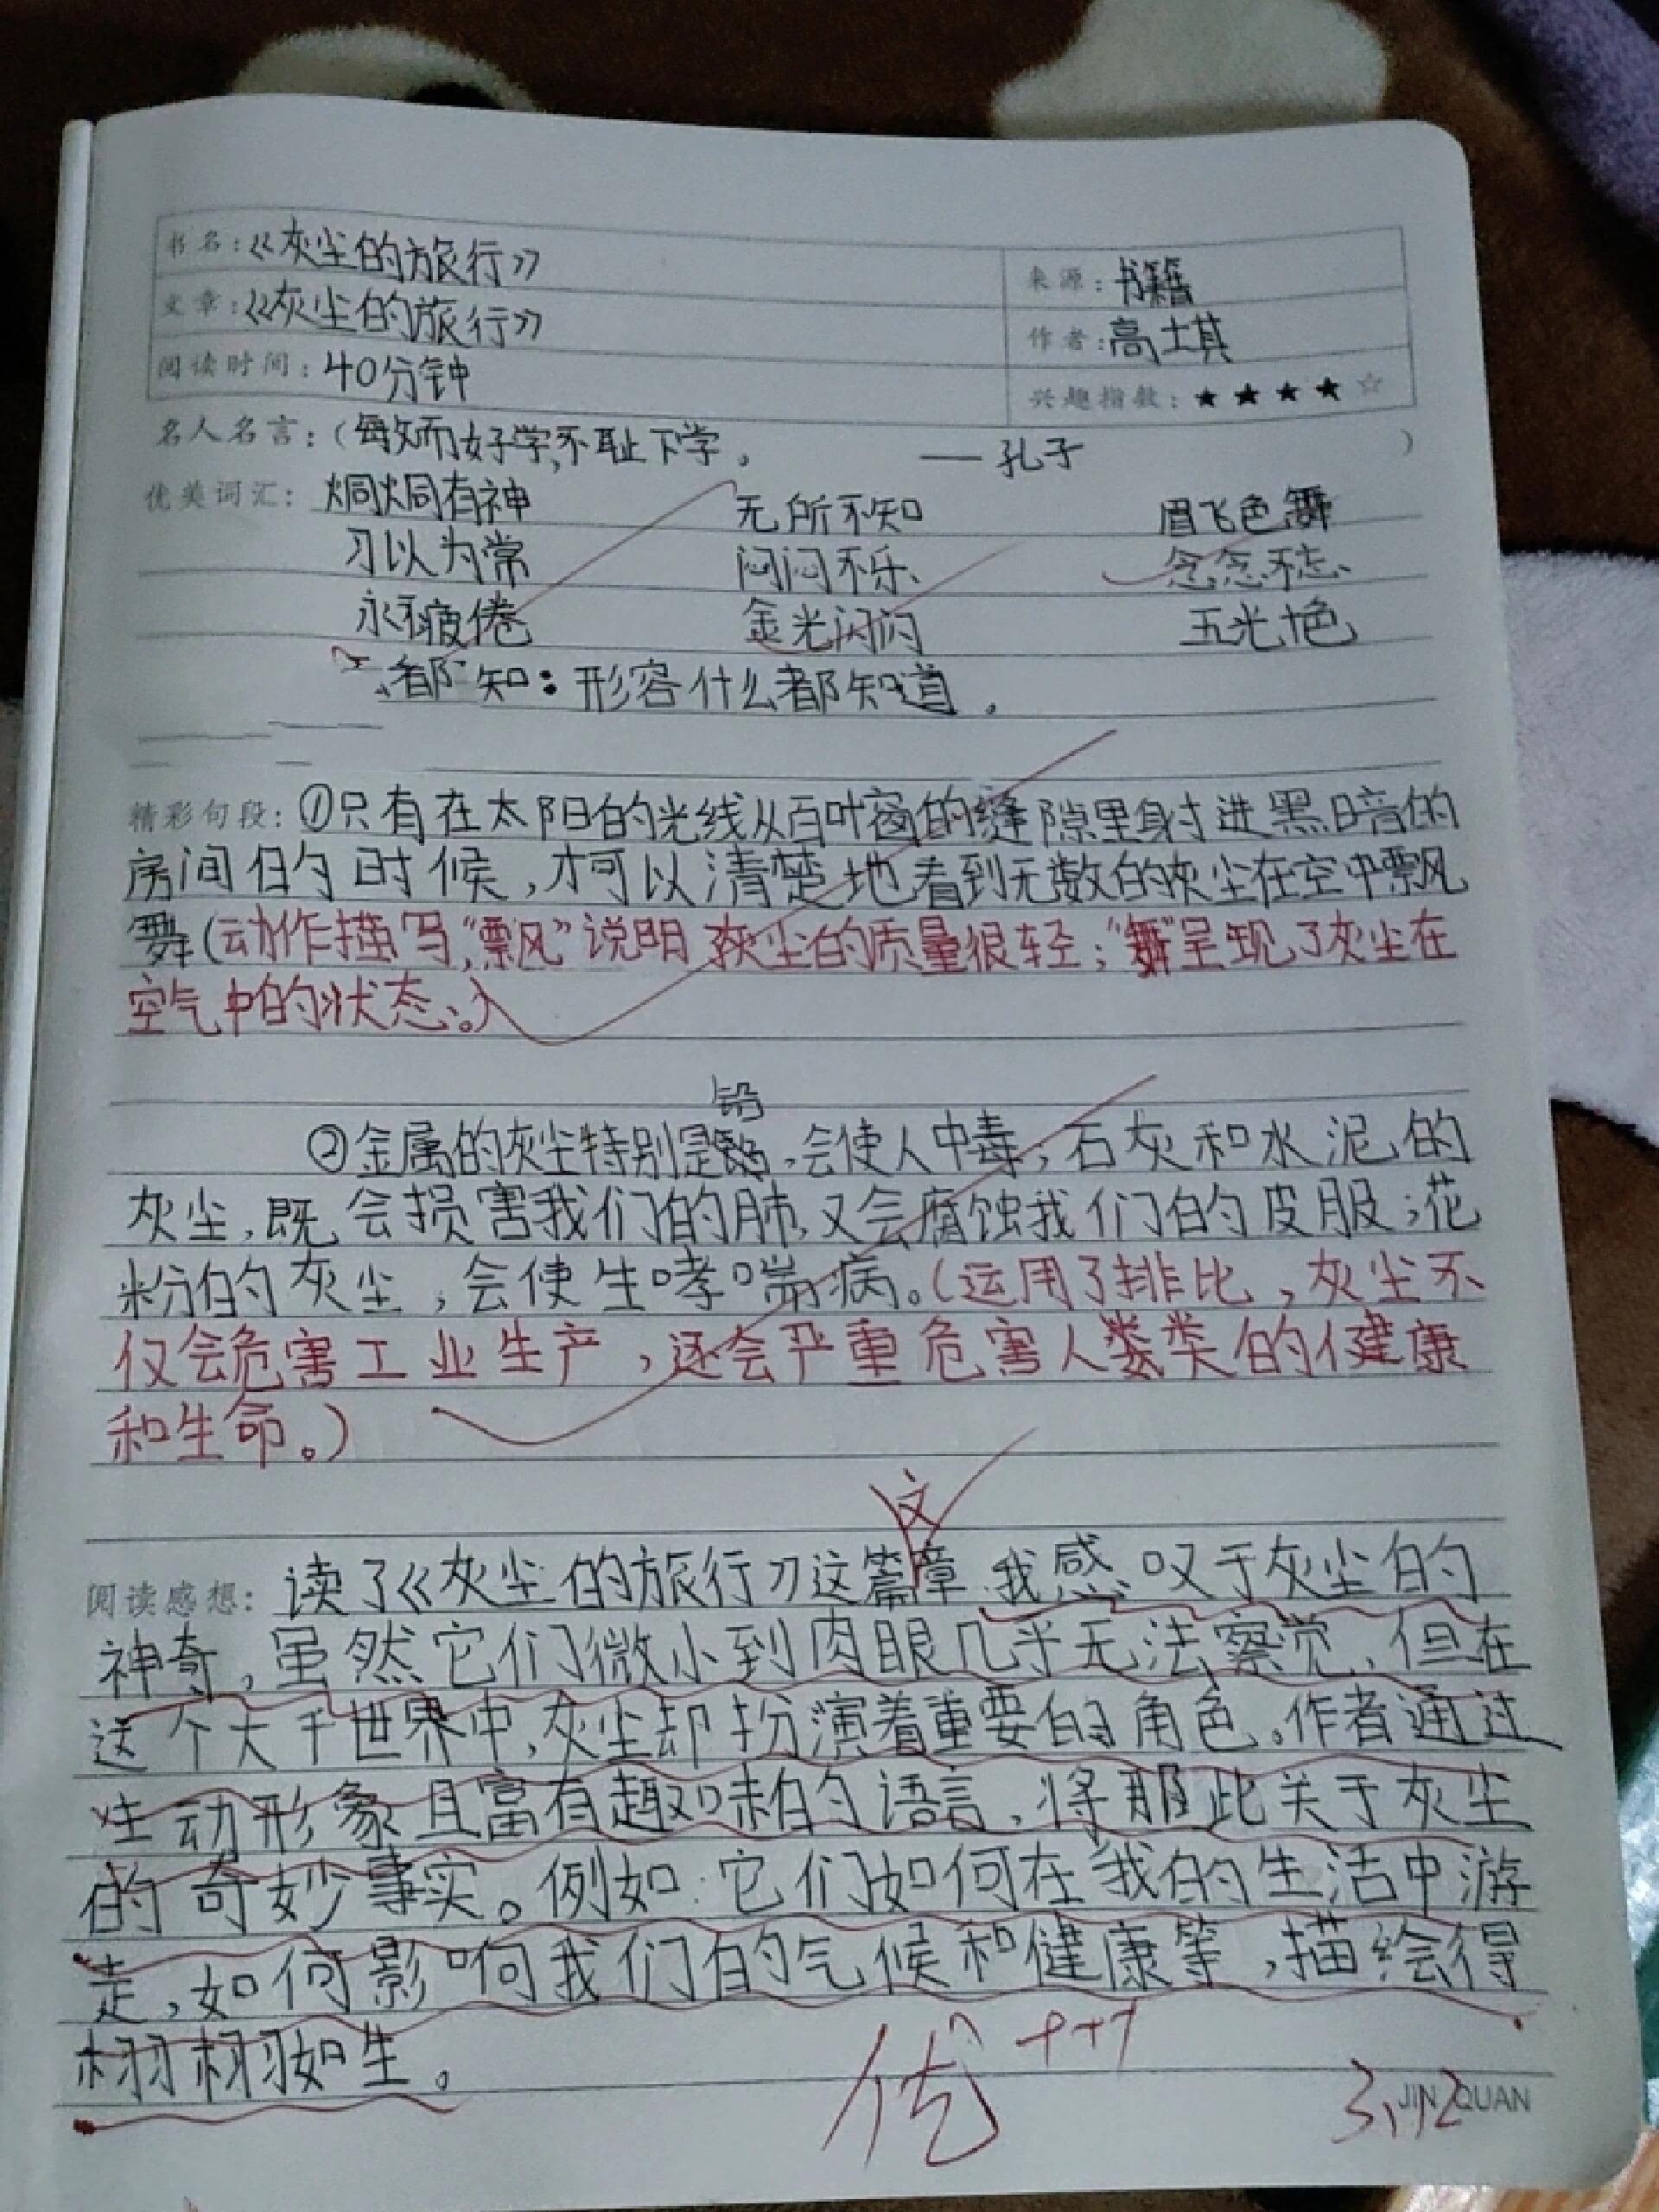 书名：《灰尘的旅行》 来源：书籍
文章：《灰尘的旅行》 作者：高士其
阅读时间：40分钟 兴趣指数：★★★★☆
名人名言：（敏而好学，不耻下学。 —孔子 ）
优美词汇：炯炯有神 无所不知 眉飞色舞
习以为常 闷闷不乐 念念不忘
永不疲倦 金光闪闪 五光十色
都 知：形容什么都知道。
精彩句段：①只有在太阳的光线从百叶窗的缝隙里射进黑暗的
房间的时候，才可以清楚地看到无数的灰尘在空中飘
舞（动作描写，“飘”说明灰尘的质量很轻；“舞”呈现了灰尘在
空气中的状态。）
铅
②金属的灰尘特别是，会使人中毒；石灰和水泥的
灰尘，既会损害我们的肺，又会腐蚀我们的皮服；花
粉的灰尘，会使生哮喘病。（运用了排比，灰尘不
仅会危害工业生产，还会严重危害人类的健康
和生命。）
文
阅读感想：读了《灰尘的旅行》这篇章，我感叹于灰尘的
神奇，虽然它们微小到肉眼几乎无法察觉，但在
这个大千世界中，灰尘却扮演着重要的角色。作者通过
生动形象且富有趣味的语言，将那此关于灰尘
的奇妙事实。例如：它们如何在我的生活中游
走，如何影响我们的气候和健康等，描绘得
栩栩如生。
优
3.12
JIN QUAN